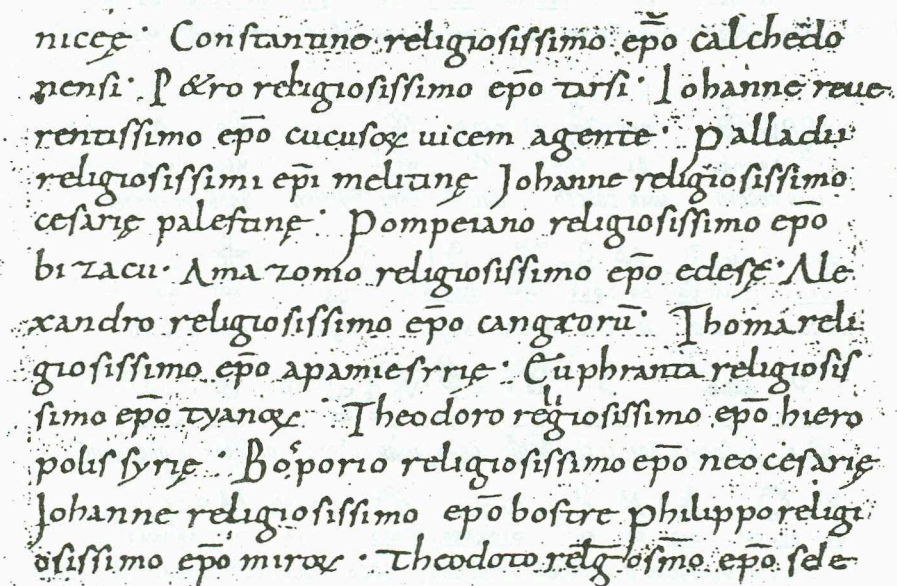 niceę· Constantino religiosissimo ep̄o calchedo
nensi· P&ro religiosissimo ep̄o tarsi· Iohanne reue
rentissimo ep̄o cucusoꝝ uicem agente· Palladii
religiosissimi ep̄i melitinę Iohanne religiosissimo
cesarię palestinę· Pompeiano religiosissimo ep̄o
bizacii· Amazonio religiosissimo ep̄o edesę· Ale
xandro religiosissimo ep̄o cangrorū· Thoma reli
giosissimo ep̄o apamie syrię· Euphranta religiosis
simo ep̄o tyanoꝝ· Theodoro religiosissimo ep̄o hiero
polis syrię· Bosporio religiosissimo ep̄o neocesarię
Iohanne religiosissimo ep̄o bostre philippo religi
osissimo ep̄o miroꝝ· Theodoto relg̅iosm̄o ep̄o sele